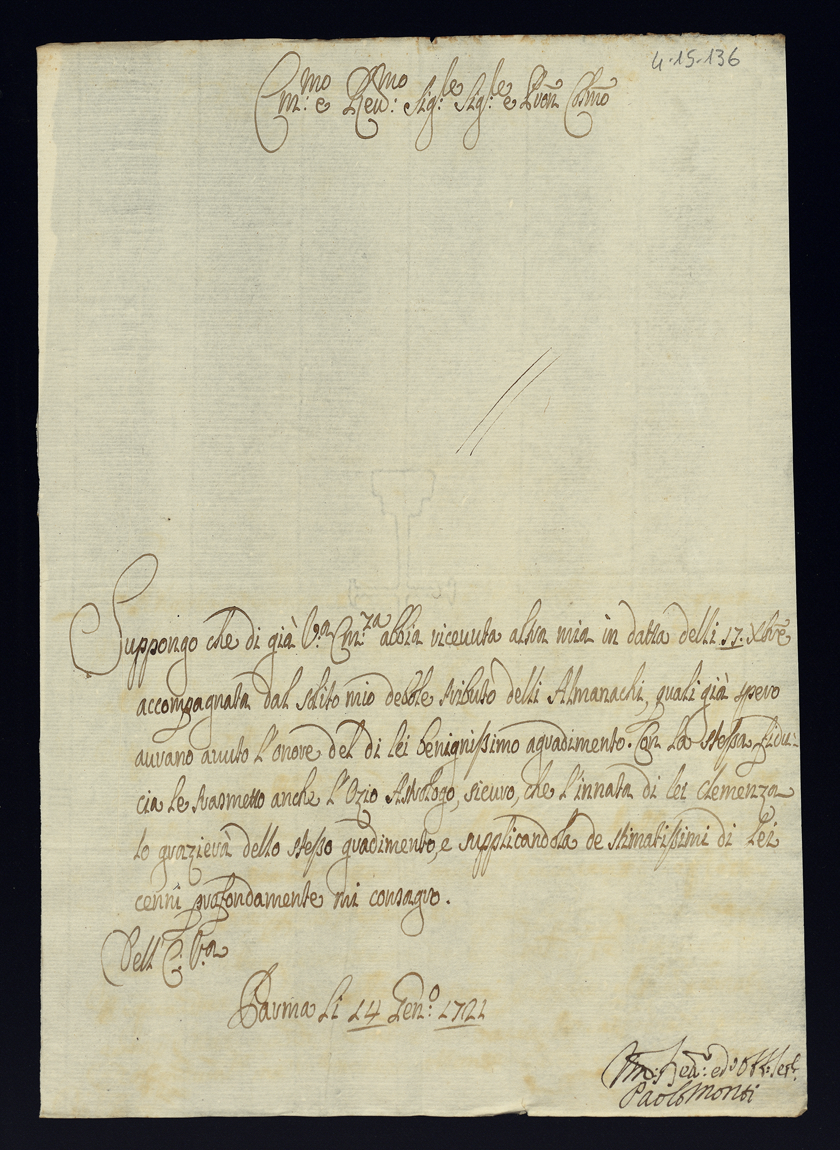 4·15·136
Em:mo e Reu:mo Sig:le Sig:le e Pron Colmo
Suppongo che di già V:a Em:za abbia riceuuta altra mia in datta delli 17. Xbre
accompagnata dal solito mio debole tributo delli Almanachi, quali già spero
auranno auuto l'onore del di lei benignissimo agradimento. Con la stessa fidu:
cia le trasmetto anche l'Ozio Astrologo, sicuro, che l'innata di lei clemenza
lo grazierà dello stesso gradimento, e supplicandola de stimatissimi di lei
cenni profondamente mi consagro.
Dell'E: V:a
Parma li 14 Gen:o 1721
Paolo Monti